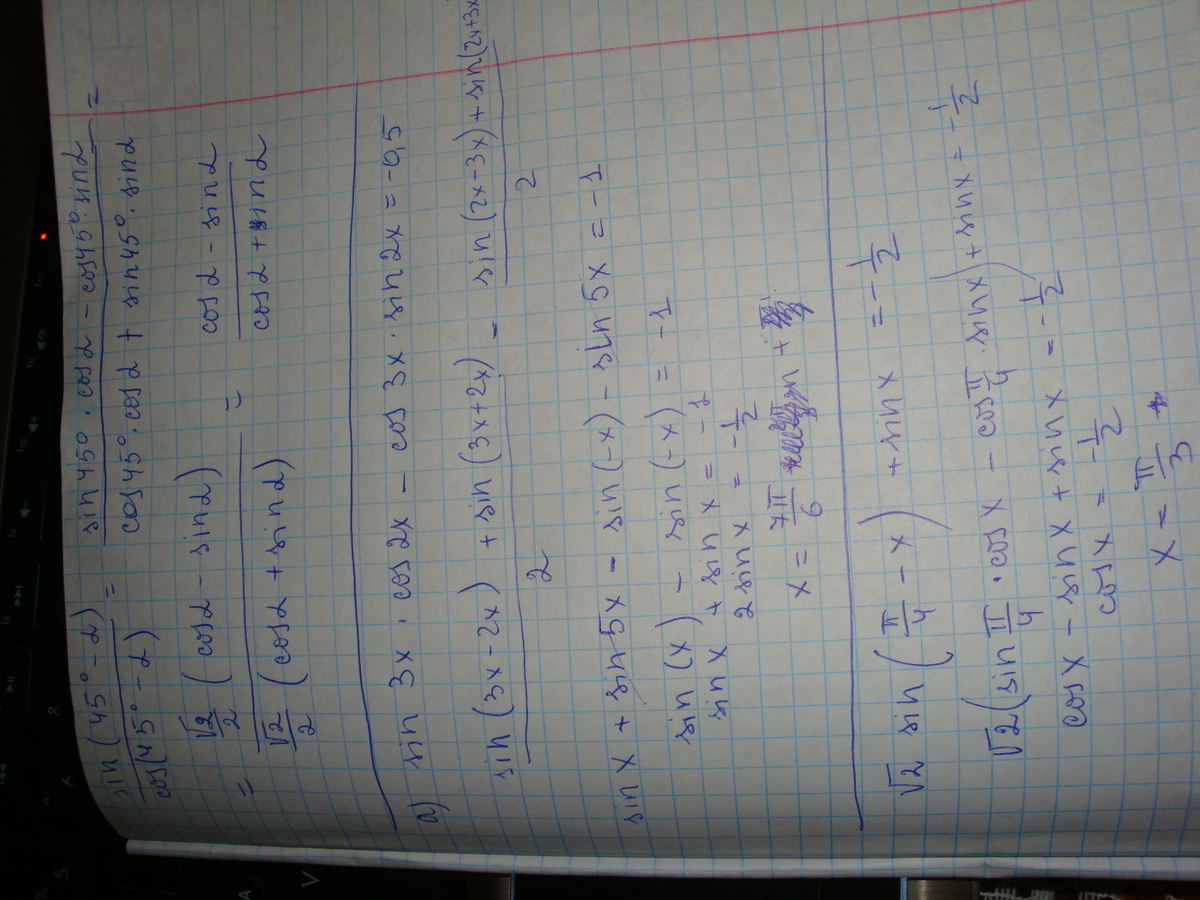 sin(45° - α) / cos(45° - α) = sin45° · cosα - cos45° · sinα / cos45° · cosα + sin45° · sinα =
= √2/2 (cosα - sinα) / √2/2 (cosα + sinα) = cosα - sinα / cosα + sinα
а) sin 3x · cos 2x - cos 3x · sin 2x = -0,5
sin(3x - 2x) + sin(3x + 2x) / 2 - sin(2x - 3x) + sin(2x + 3x / 2
sin x + sin 5x - sin(-x) - sin 5x = -1
sin(x) - sin(-x) = -1
sin x + sin x = -1
2 sin x = -1/2
x = 7π/6 +
√2 sin(π/4 - x) + sin x = -1/2
√2(sin π/4 · cos x - cos π/4 · sin x) + sin x = -1/2
cos x - sin x + sin x = -1/2
cos x = -1/2
x = π/3 +